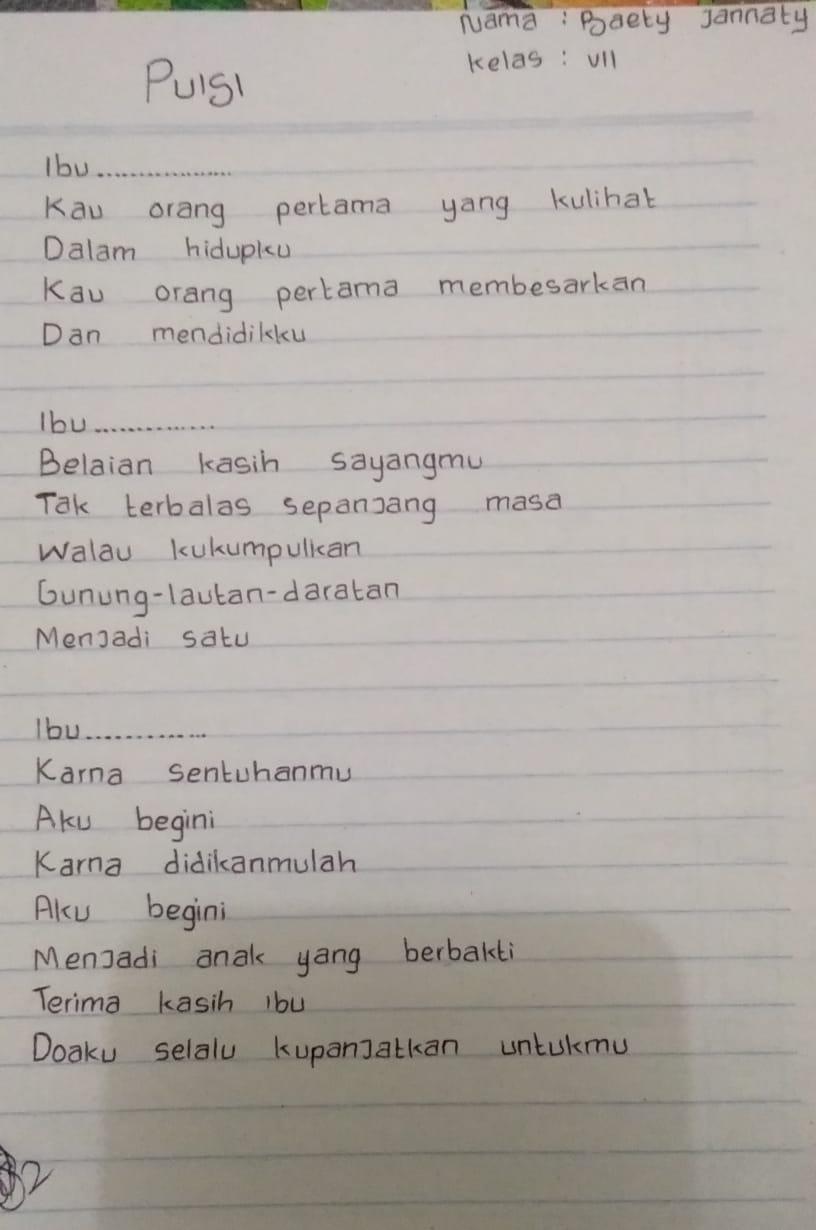 Nama : Baety Jannaty
Kelas : VII
PUISI
Ibu..................
Kau orang pertama yang kulihat
Dalam hidupku
Kau orang pertama membesarkan
Dan mendidikku
Ibu..............
Belaian kasih sayangmu
Tak terbalas sepanjang masa
Walau kukumpulkan
Gunung-lautan-daratan
Menjadi satu
Ibu..............
Karna sentuhanmu
Aku begini
Karna didikanmulah
Aku begini
Menjadi anak yang berbakti
Terima kasih ibu
Doaku selalu kupanjatkan untukmu
2